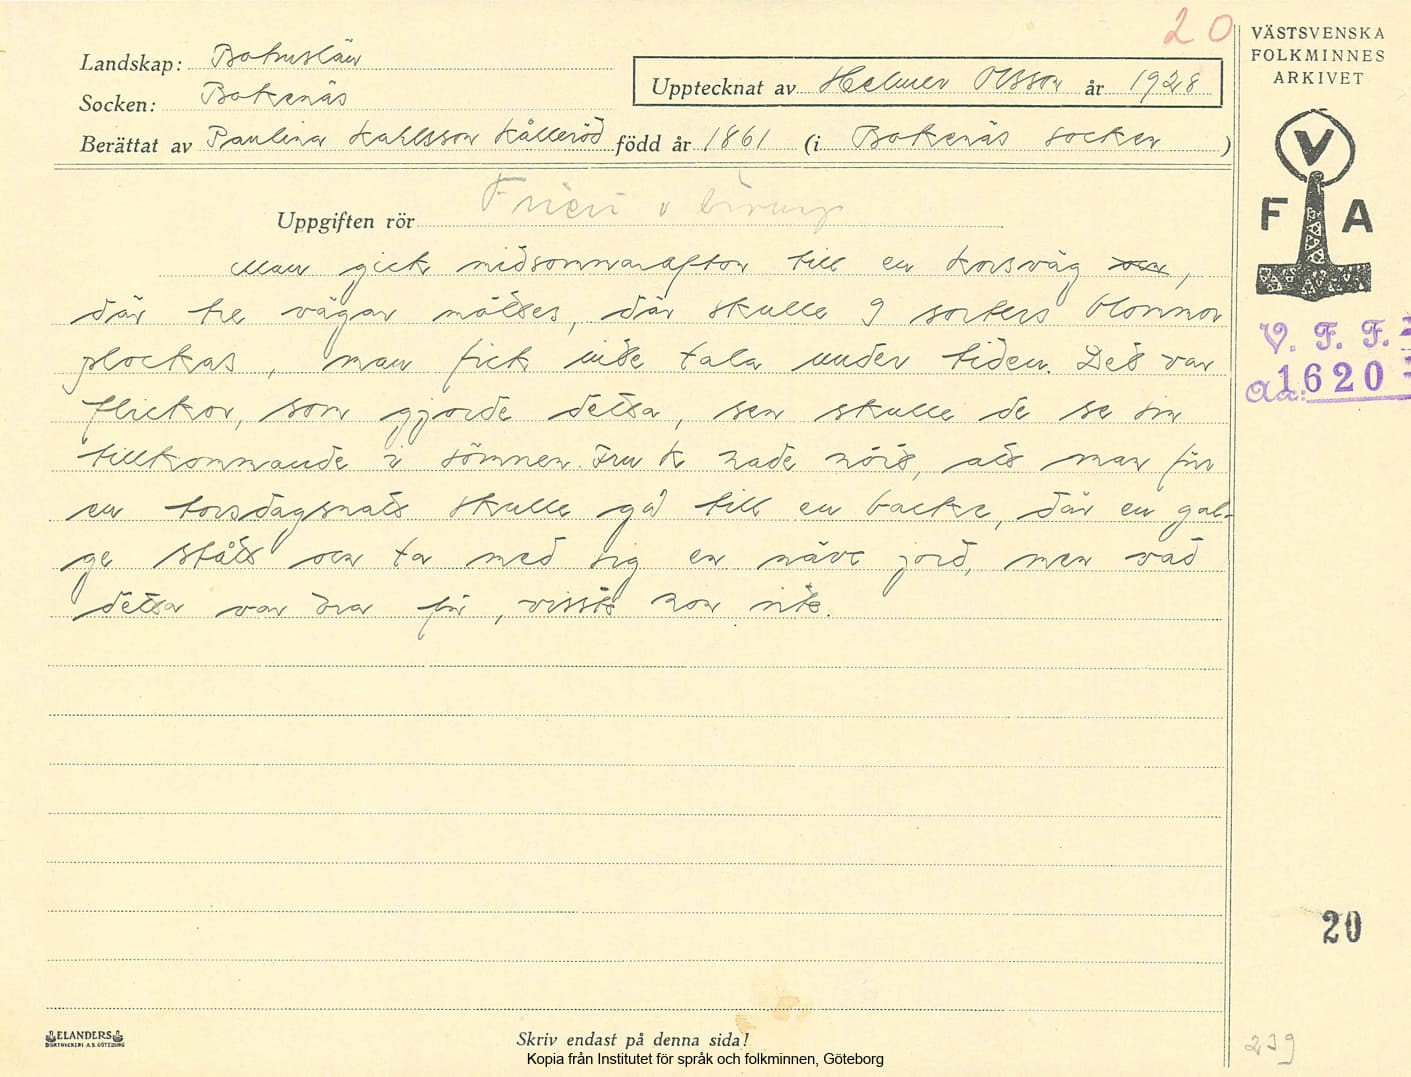 20
VÄSTSVENSKA
FOLKMINNES
ARKIVET
Landskap: Bohuslän
Socken: Bokenäs
Upptecknat av Helmer Olsson år 1928
Berättat av Paulina Karlsson Kålleröd född år 1861 (i Bokenäs socken )
V
F A
Uppgiften rör Frieri o
Man gick midsommarafton till en korsväg och,
där tre vägar möttes, där skulle 9 sorters blommor
plockas, man fick inte tala under tiden. Det var
flickor, som gjorde detta, sen skulle de se sin
tillkommande i sömnen. Fru K hade hört, att man för
en torsdagsnatt skulle gå till en backe, där en gal-
ge stått och ta med sig en näve jord, men vad
detta var bra för, visste hon inte.
V. F. F.
Aa: 1620
20
239
ELANDERS
BOKTRYCKERI A.B. GÖTEBORG
Skriv endast på denna sida!
Kopia från Institutet för språk och folkminnen, Göteborg